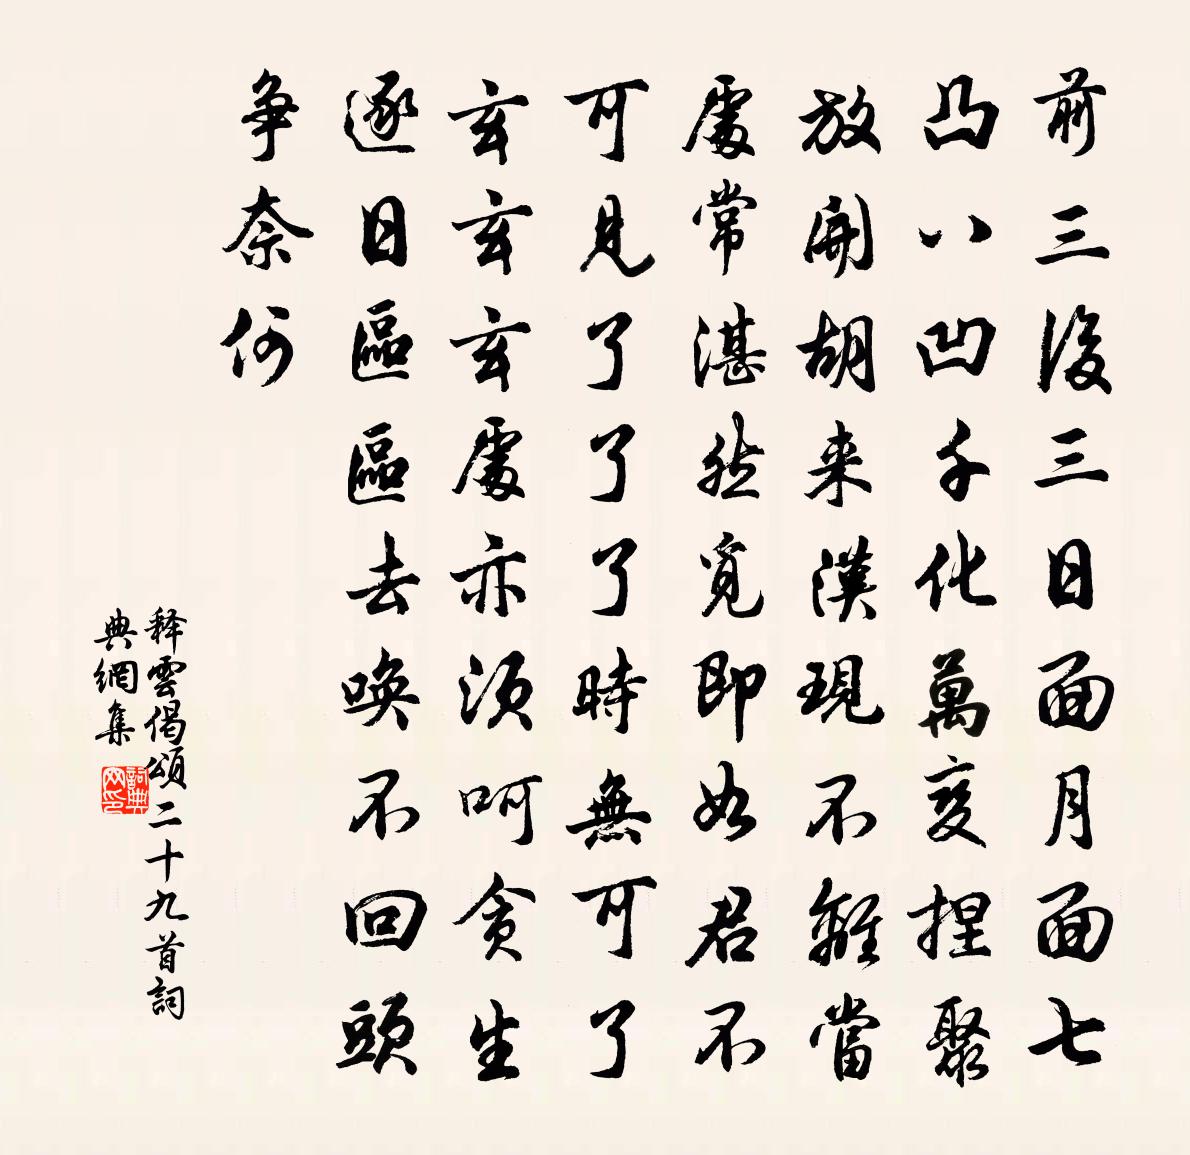 前三後三日面月面七
凸八凹千化萬变捏聚
放開胡来漢現不離當
處常湛然覓即如君不
可見了了了時無可了
玄玄玄處亦須呵貪生
逐日區區去唤不回頭
争奈何
释雲偈頌二十九首詞
典網集
詞典网印